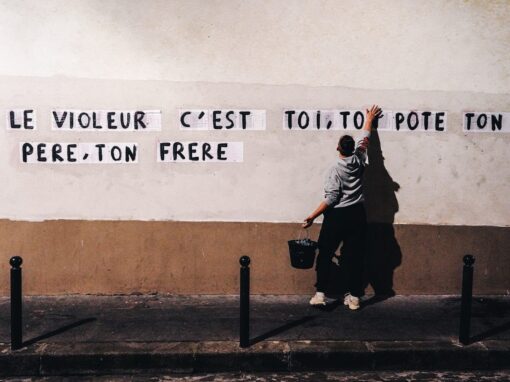 LE VIOLEUR C'EST TOI, TON POTE TON
PERE, TON FRERE